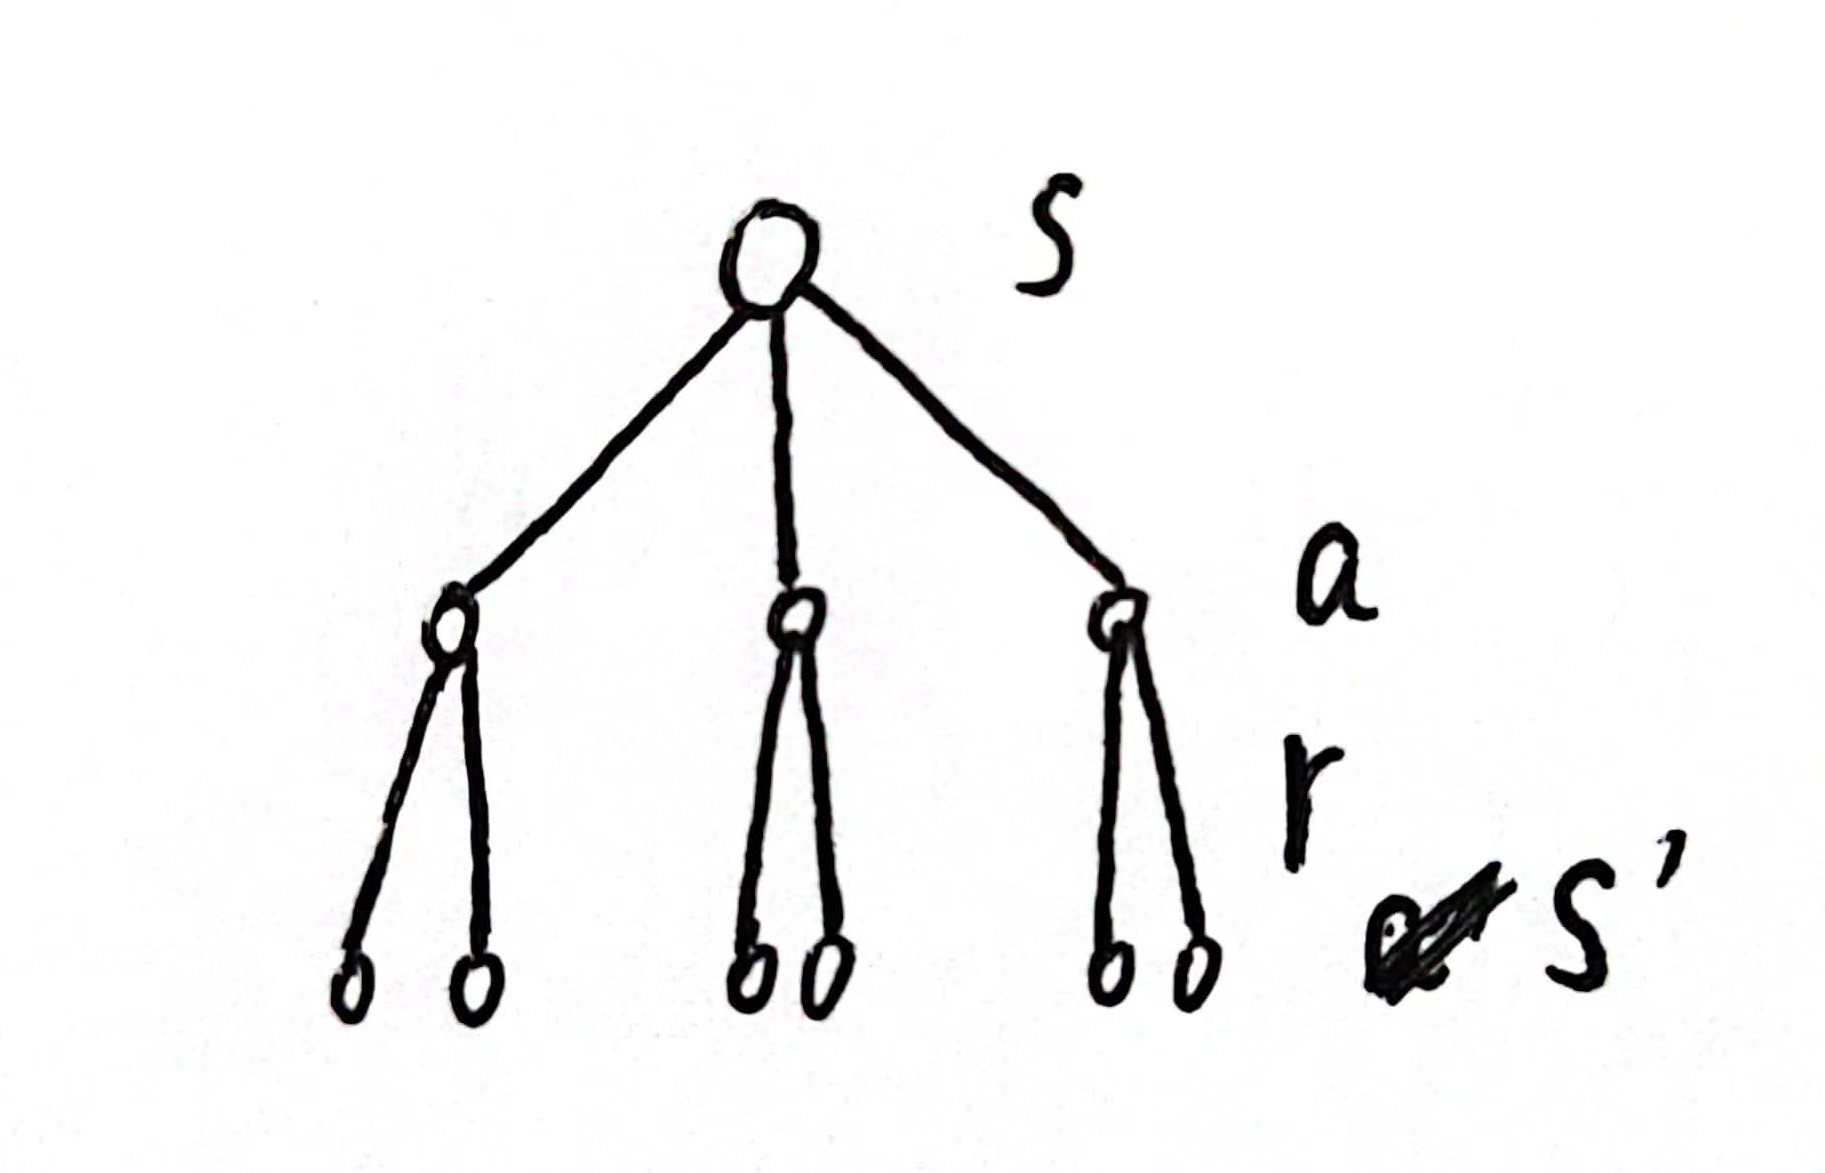 S
a
r
S'